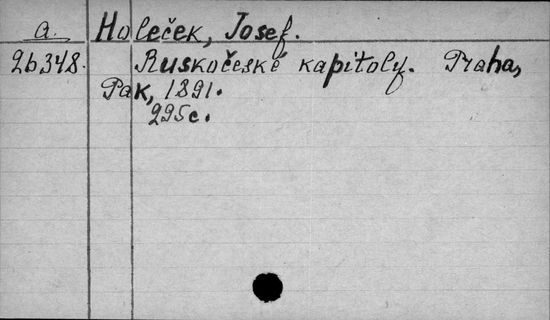 a. Holeček, Josef.
26348. Ruskočeské kapitoly. Praha,
Pak, 1891.
295c.